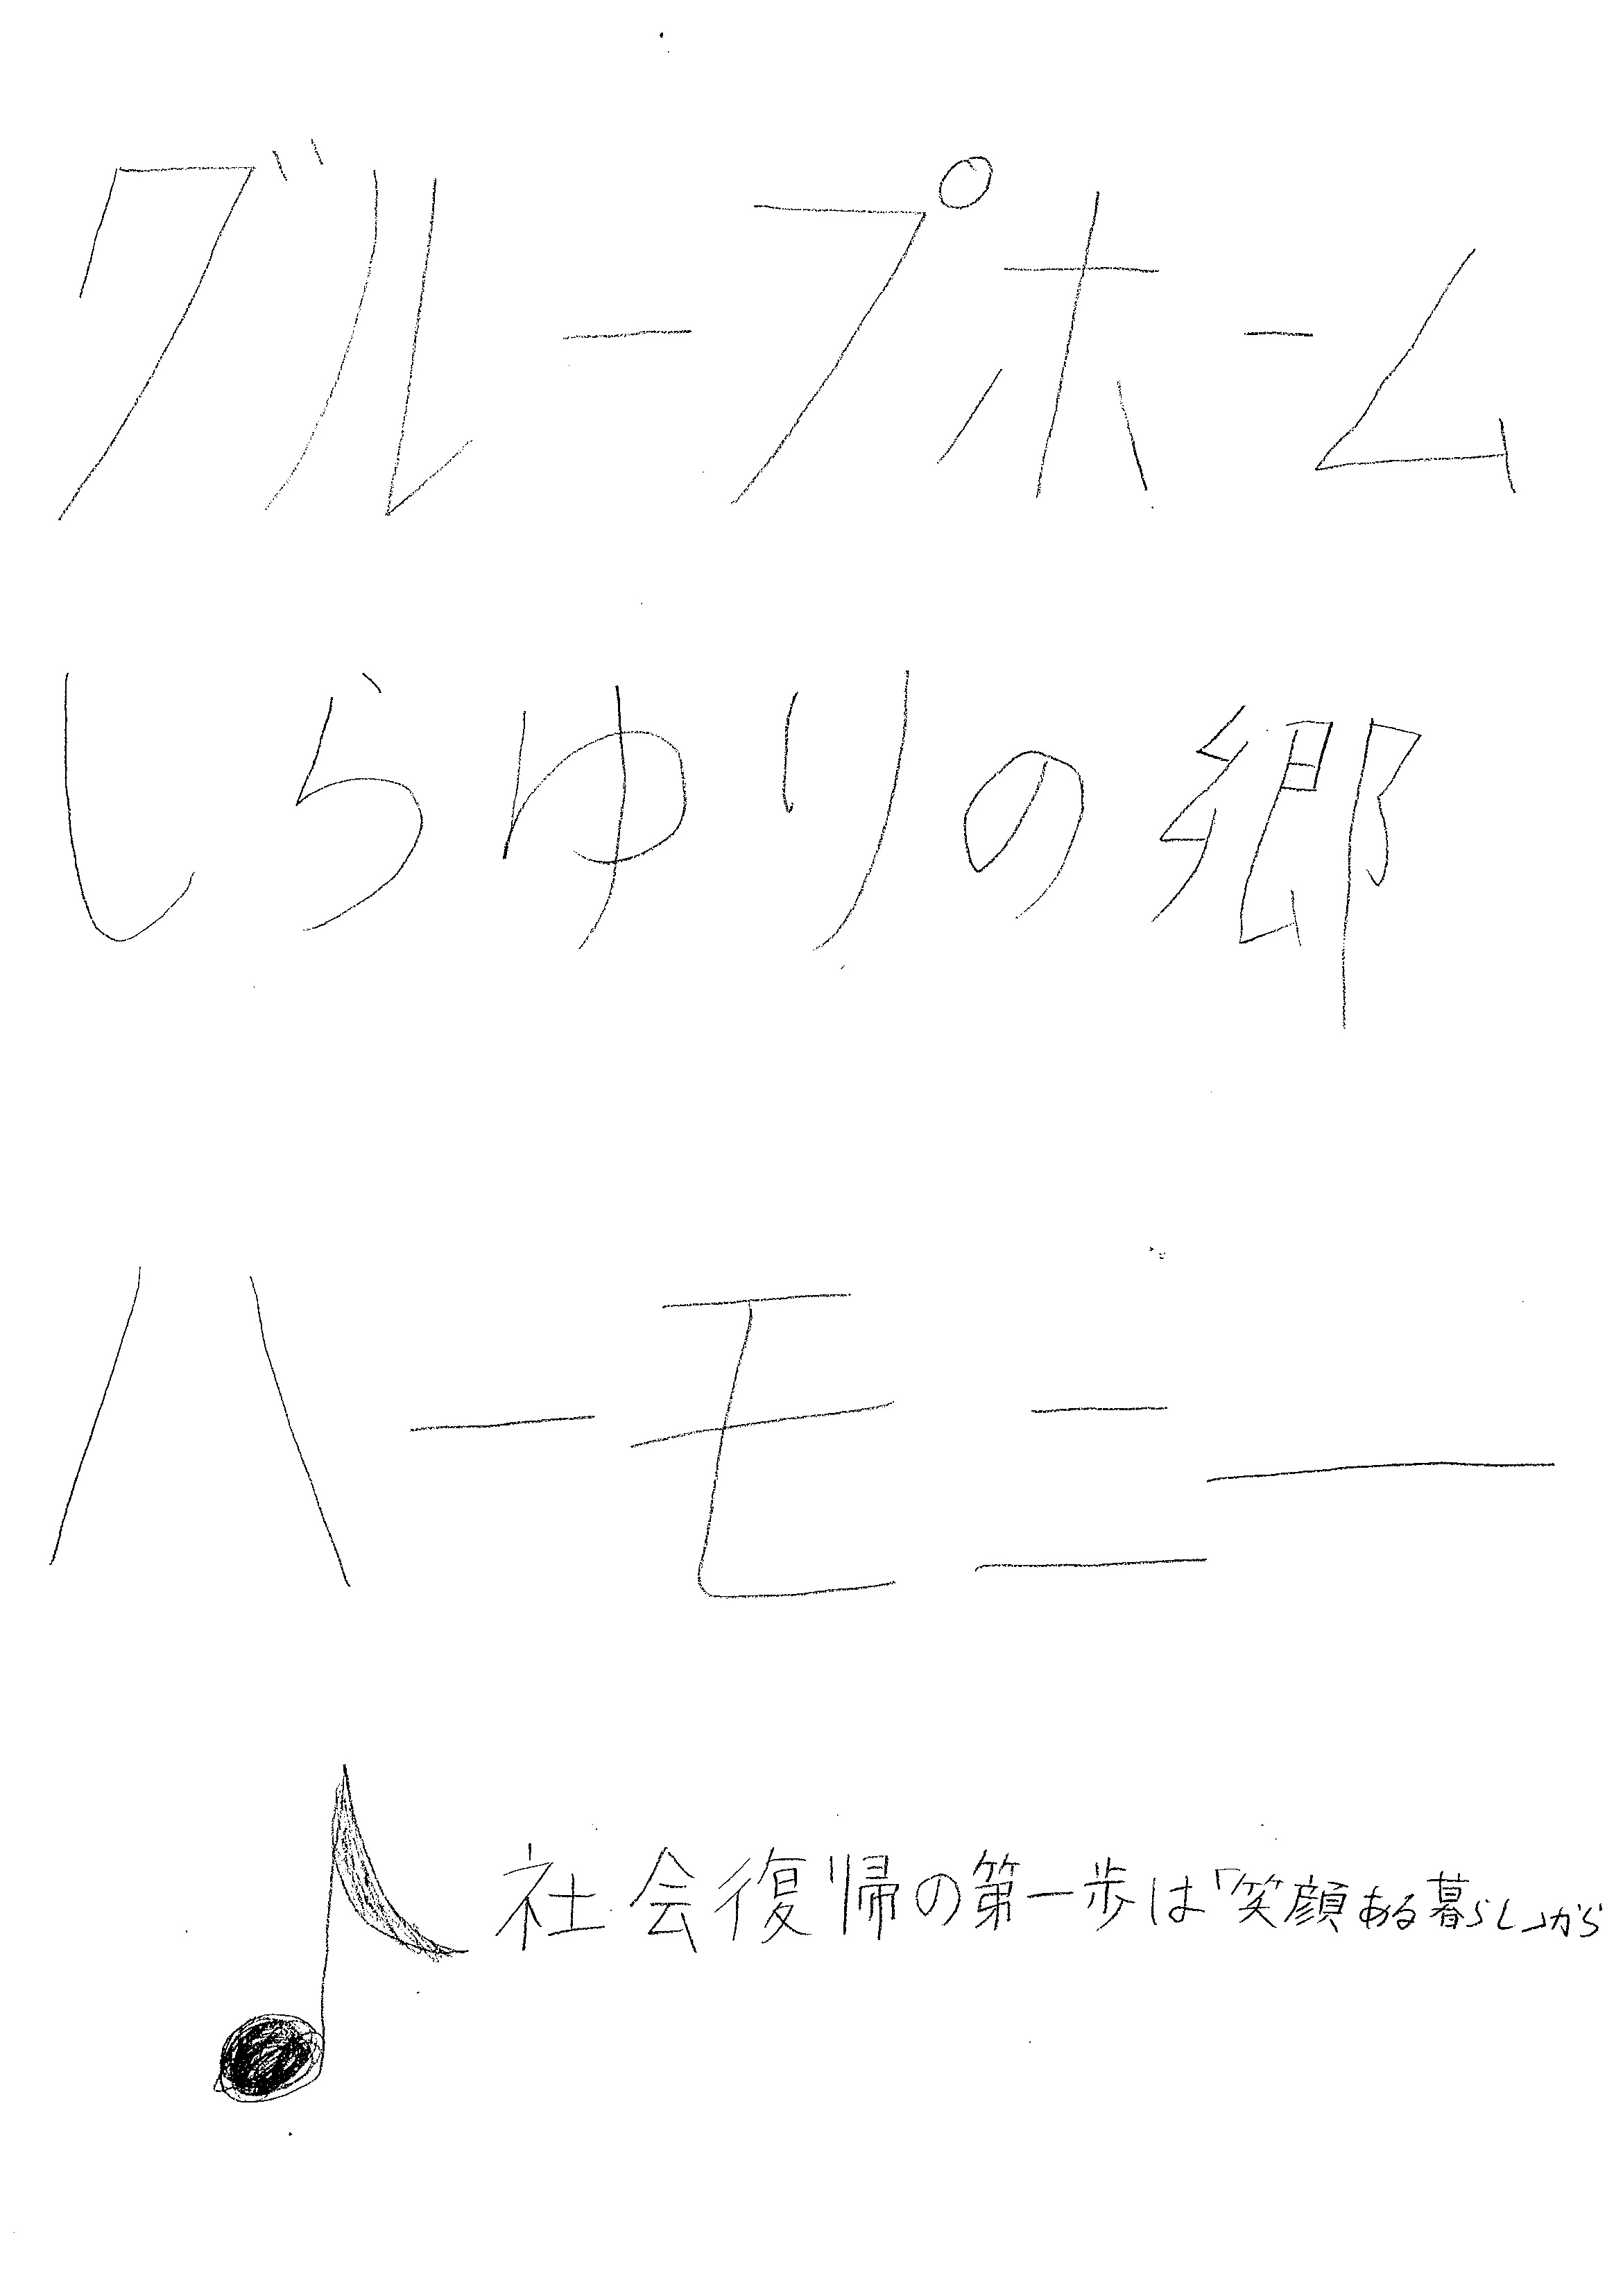 グループホーム
しらゆりの郷
ハーモニー
社会復帰の第一歩は「笑顔ある暮らし」から